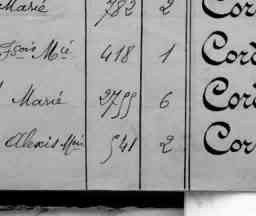 Marié 782 2 Cor
Fçois Mié 418 1 Cor
Marié 2799 6 Cor
Alexis Mié 541 2 Cor